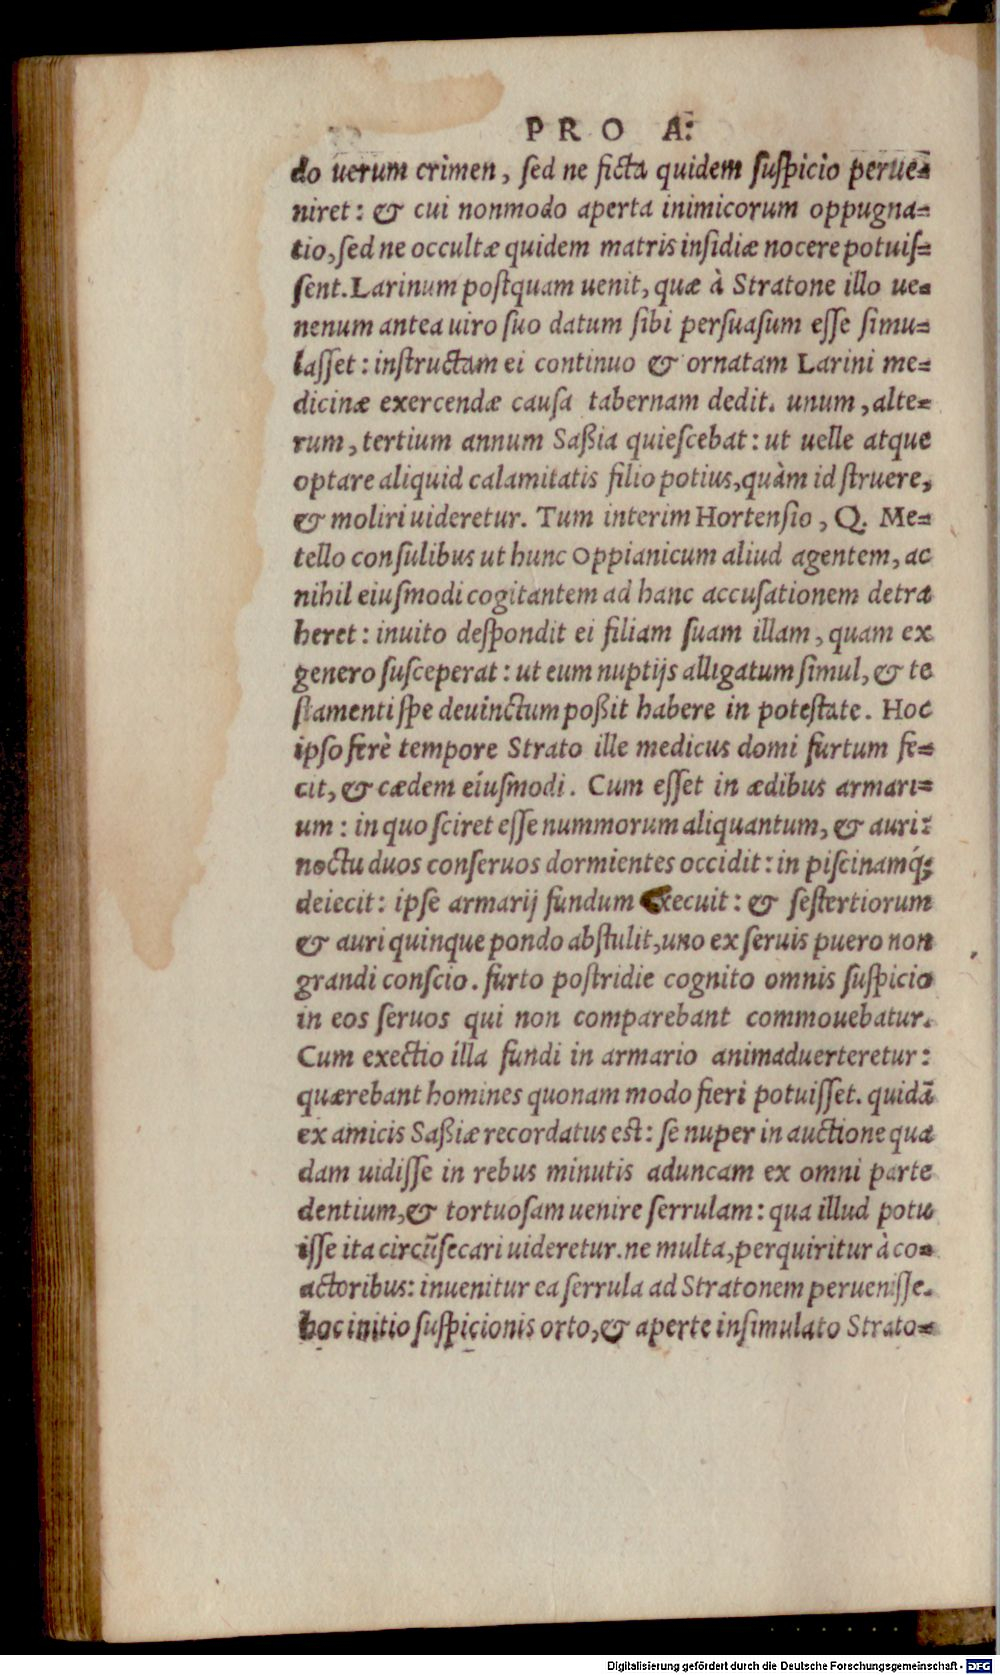 PRO A:
do uerum crimen, sed ne ficta quidem suspicio perue=
niret: & cui nonmodo aperta inimicorum oppugna=
tio, sed ne occultæ quidem matris insidiæ nocere potuis=
sent. Larinum postquam uenit, quæ à Stratone illo ue=
nenum antea uiro suo datum sibi persuasum esse simu=
lasset: instructam ei continuo & ornatam Larini me=
dicinæ exercendæ causa tabernam dedit. unum, alte=
rum, tertium annum Saßia quiescebat: ut uelle atque
optare aliquid calamitatis filio potius, quàm id struere,
& moliri uideretur. Tum interim Hortensio, Q. Me=
tello consulibus ut hunc Oppianicum aliud agentem, ac
nihil eiusmodi cogitantem ad hanc accusationem detra
heret: inuito despondit ei filiam suam illam, quam ex
genero susceperat: ut eum nuptijs alligatum simul, & te
stamenti spe deuinctum poßit habere in potestate. Hoc
ipso ferè tempore Strato ille medicus domi furtum fe=
cit, & cædem eiusmodi. Cum esset in ædibus armari=
um: in quo sciret esse nummorum aliquantum, & auri:
noctu duos conseruos dormientes occidit: in piscinamq́;
deiecit: ipse armarij fundum execuit: & sestertiorum
& auri quinque pondo abstulit, uno ex seruis puero non
grandi conscio. furto postridie cognito omnis suspicio
in eos seruos qui non comparebant commouebatur.
Cum exectio illa fundi in armario animaduerteretur:
quærebant homines quonam modo fieri potuisset. quidã
ex amicis Saßiæ recordatus est: se nuper in auctione qua
dam uidisse in rebus minutis aduncam ex omni parte
dentium, & tortuosam uenire serrulam: qua illud potu
isse ita circũsecari uideretur. ne multa, perquiritur à co=
actoribus: inuenitur ea serrula ad Stratonem peruenisse.
hoc initio suspicionis orto, & aperte insimulato Strato=
Digitalisierung gefördert durch die Deutsche Forschungsgemeinschaft - DFG